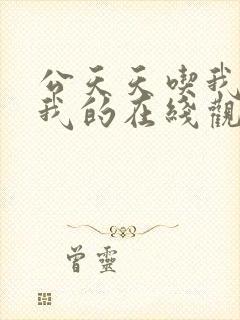 公天天喫我
我的在綫觀
曾靈